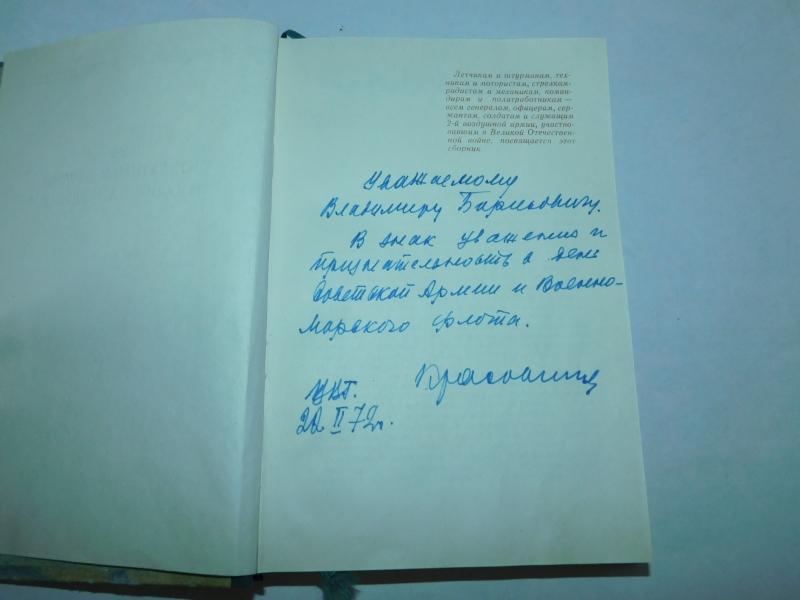 Летчикам и штурманам, тех-
никам и мотористам, стрелкам-
радистам и механикам, коман-
дирам и политработникам —
всем генералам, офицерам, сер-
жантам, солдатам и служащим
2-й воздушной армии, участво-
вавшим в Великой Отечествен-
ной войне, посвящается этот
сборник
Уважаемому
Владимиру Борисовичу.
В знак уважения и
признательность в день
Советской Армии и Военно-
Морского Флота.
Красовский
22 II 72г.